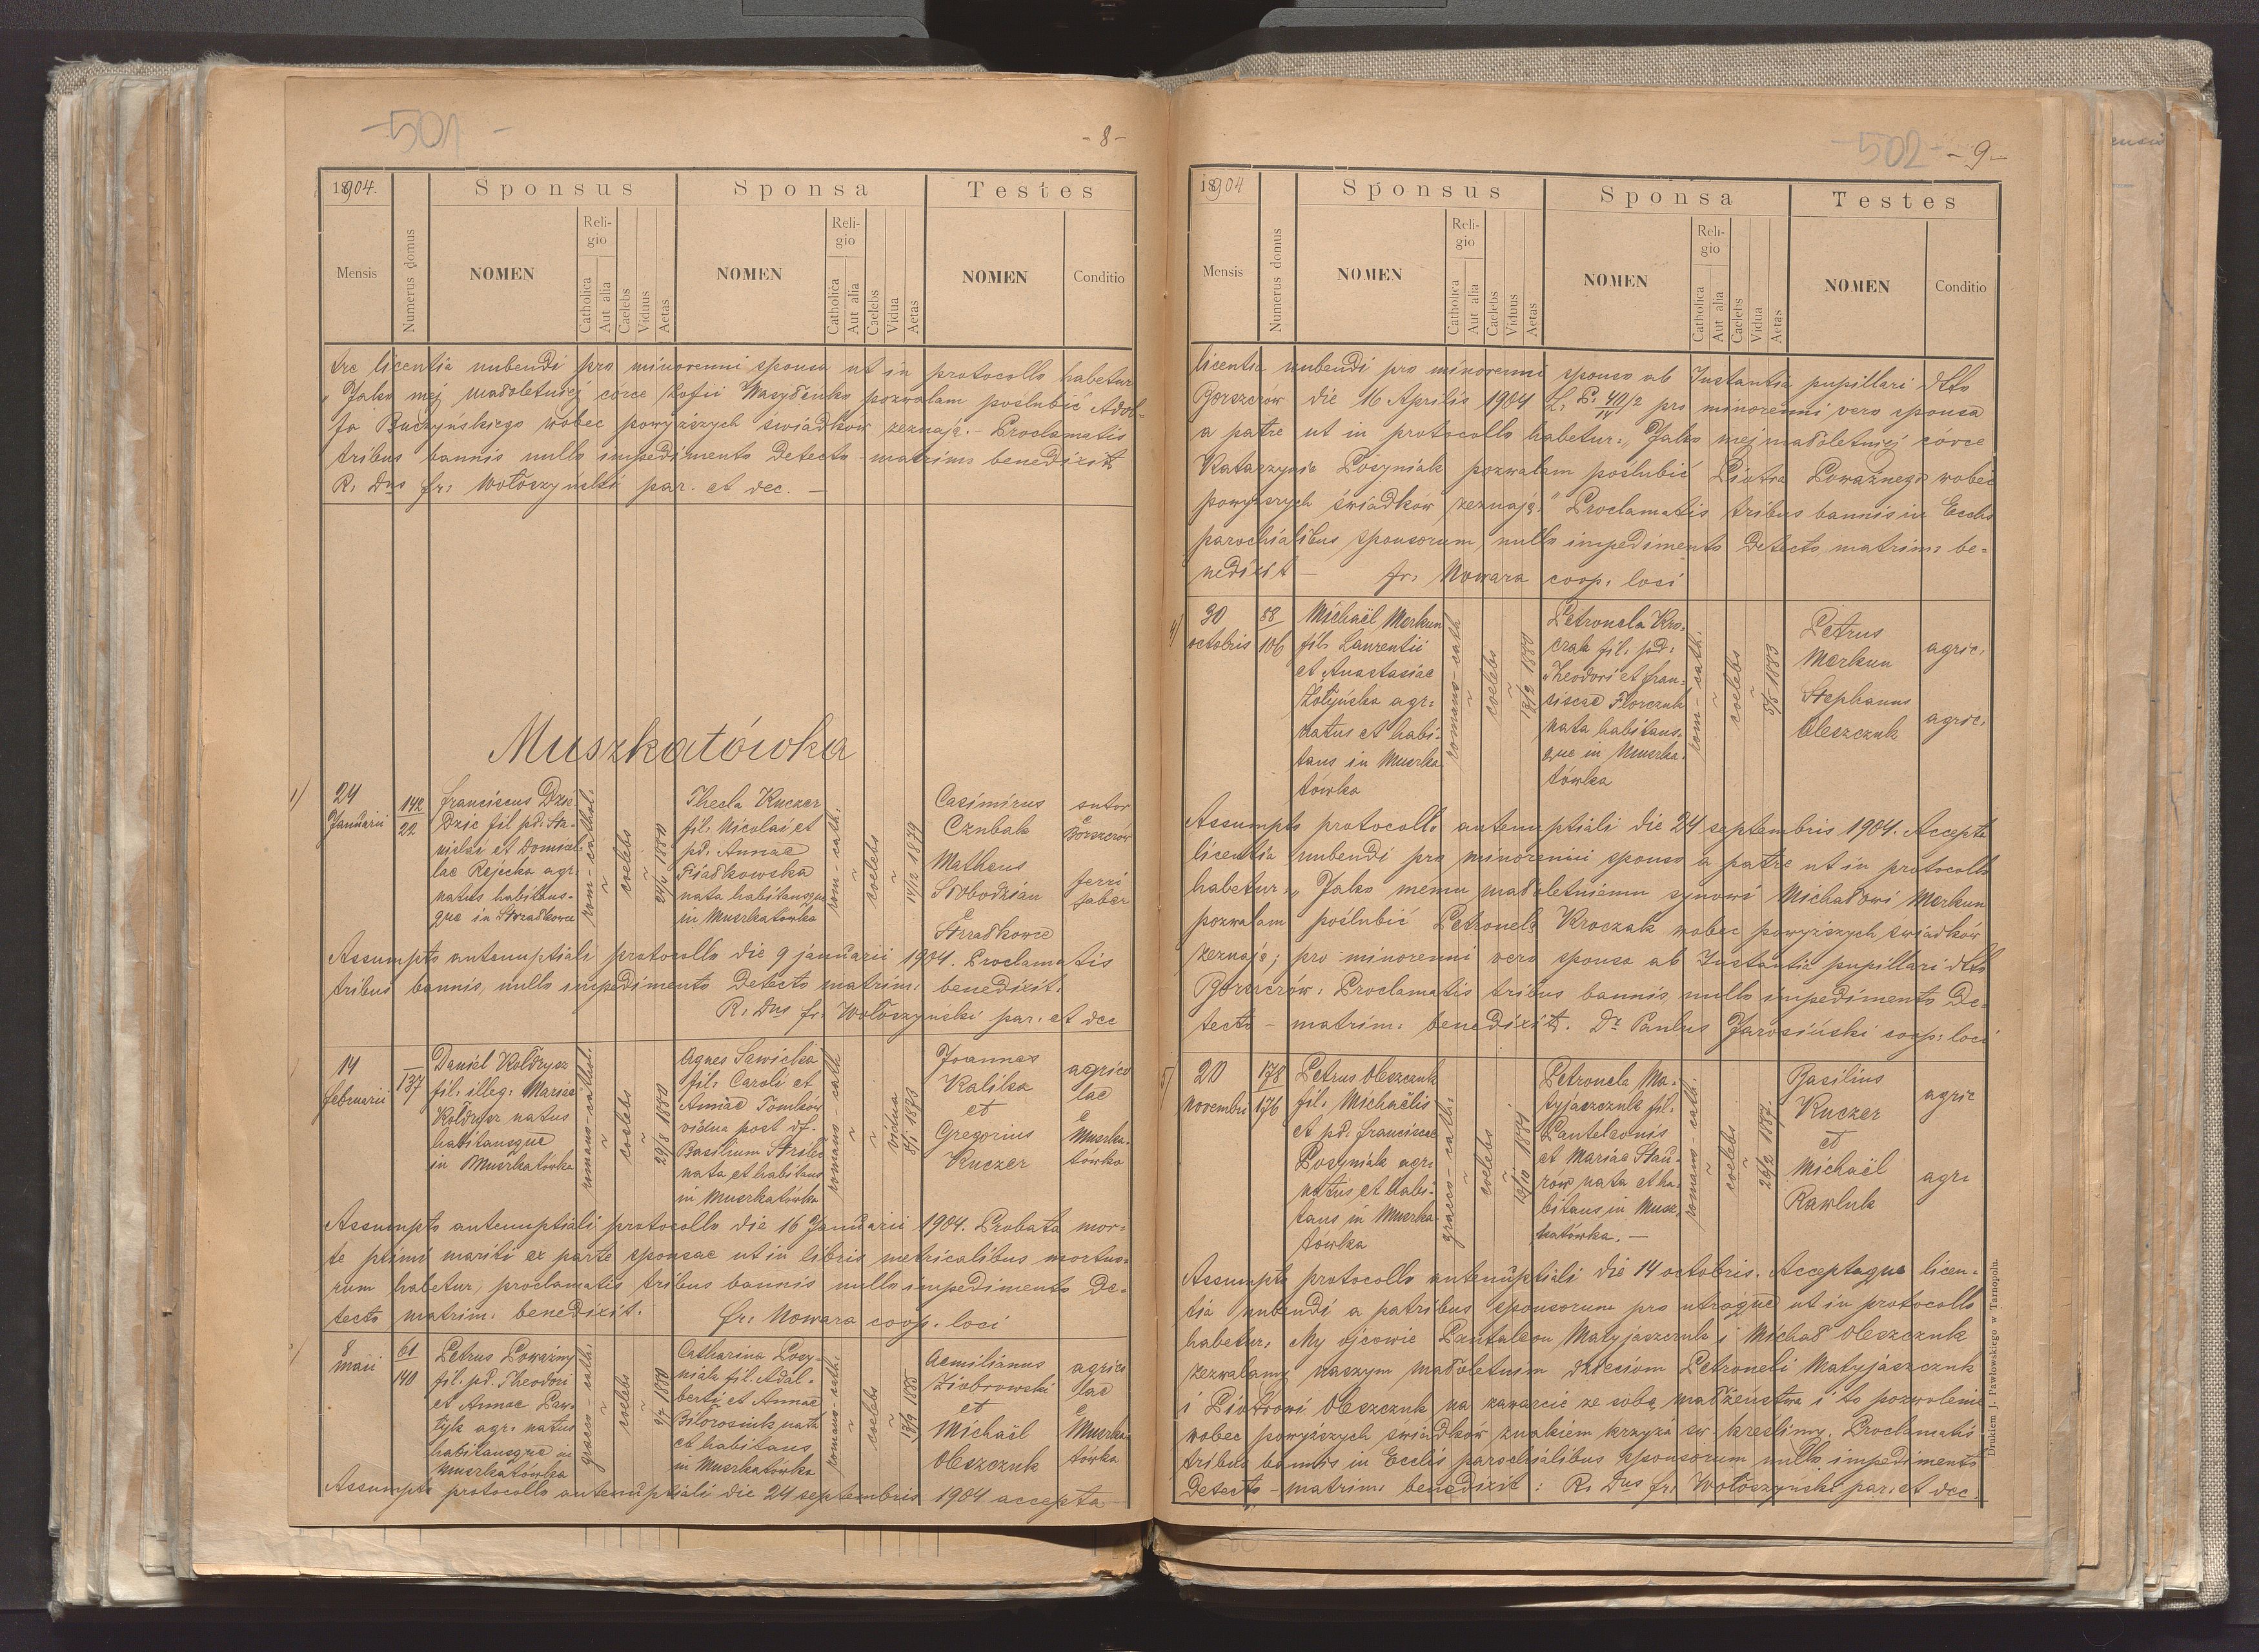 -501-
-8-
1904.
Sponsus
Sponsa
Testes
Mensis
Numerus domus
NOMEN
Religio
Catholica
Aut alia
Caelebs
Viduus
Aetas
NOMEN
Religio
Catholica
Aut alia
Caelebs
Vidua
Aetas
NOMEN
Conditio
licentia nubendi pro minorenni sponsa ut in protocollo habetur
"Jako mej małoletniej córce Zofii Wasyłeńko pozwalam poślubić Adol-
fa Buczyńskiego wobec powyższych świadków zeznają.- Proclamatis
tribus bannis nullo impedimento detecto - matrim: benedixit
R. Dns fr: Wołoszyński par. et dec. -
Muszkatówka
1)
24
Januarii
142
22
Franciscus Dzie-
dzic fil pd. Sta-
nislai et Domicel-
lae Rejecka agr.
natus habitans-
que in Strzałkowce
rom-cathol.
coelebs
24/1 1880
Thecla Kuczer
fil. Nicolai et
pd. Annae
Fiałkowska
nata habitansque
in Muszkatówka
rom-cath.
coelebs
14/12 1879
Casimirus
Czubak
Matheus
Słobodzian
e
Strzałkowce
sutor
e
Borszczów
ferri
faber
Assumpto antenuptiali protocollo die 9 januarii 1904. Proclamatis
tribus bannis, nullo impedimento detecto matrim: benedixit.
R. Dns fr. Wołoszyński par. et dec
14
februarii
137
Daniel Kołdrysz
fil. illeg: Mariae
Kołdrysz natus
habitansque
in Muszkatówka
romano-cathol.
coelebs
29/8 1880
Agnes Sawicka
fil. Caroli et
Annae Tomków
vidua post df.
Basilium Strilec
nata et habitans
in Muszkatówka
romano-cath
vidua
8/1 1878
Joannes
Kalika
et
Gregorius
Kuczer
agrico
lae
e
Muszka-
tówka
Assumpto antenuptiali protocollo die 16 Januarii 1904. Probata mor-
te primi mariti ex parte sponsae ut in libris metricalibus mortuo-
rum habetur, proclamatis tribus bannis nullo impedimento de-
tecto matrim. benedixit. fr. Nowara coop. loci
8
maii
61
140
Petrus Poważny
fil. pd. Theodori
et Annae Paw-
tyk agr. natus
habitansque in
Muszkatówka
graeco-cath.
coelebs
9/7 1880
Catharina Posy-
niak fil. Adal-
berti et Annae
Biłorosiuk nata
et habitans
in Muszkatówka
romano-cath.
coelebs
13/9 1885
Aemilianus
Ziobrowski
et
Michaël
Oleszczuk
agrico
lae
e
Muszka-
tówka
Assumpto protocollo antenuptiali die 24 septembris 1904 accepta
-502-
-9-
1904
Sponsus
Sponsa
Testes
Mensis
Numerus domus
NOMEN
Religio
Catholica
Aut alia
Caelebs
Viduus
Aetas
NOMEN
Religio
Catholica
Aut alia
Caelebs
Vidua
Aetas
NOMEN
Conditio
licentia nubendi pro minorenni sponso ab Instantia pupillari dtto
Borszczów die 16 Aprilis 1904 L. P. pro minorenni vero sponsa
a patre ut in protocollo habetur: "Jako mej małoletniej córce
Katarzynie Posyniak pozwalam poślubić Piotra Poważnego wobec
powyższych świadków zeznają." Proclamatis tribus bannis in Eccles
parochialibus sponsorum, nullo impedimento detecto, matrim: be-
nedixit - fr. Nowara coop. loci
4)
30
octobris
88
106
Michaël Merkun
fil. Laurentii
et Anastasiae
Żołyńska agr.
natus et habi-
tans in Muszka
tówka
romano-cath
coelebs
13/12 1880
Petronela Kro-
czak fil. pd.
Theodori et Fran-
ciscae Florczuk
nata habitans-
que in Muszka-
tówka
rom-cath.
coelebs
5/5 1883
Petrus
Merkun
Stephanus
Oleszczuk
agric.
agric.
Assumpto protocollo antenuptiali die 24 septembris 1904. Accepta
licentia nubendi pro minorenni sponso a patre ut in protocollo
habetur: "Jako memu małoletniemu synowi Michałowi Merkun
pozwalam poślubić Petronelę Kroczak wobec powyższych świadków
zeznaję; pro minorenni vero sponsa ab Instantia pupillari dtto
Borszczów. Proclamatis tribus bannis nullo impedimento de-
tecto - matrim: benedixit. Dr Paulus Jarosiński coop: loci
5)
20
novembris
178
176
Petrus Oleszczuk
fil. Michaëlis
et pd. Franciscae
Posyniak agr.
natus et habi-
tans in Muszka-
tówka
graeco-cath.
coelebs
Petronela Ma-
tyjaszczuk fil.
Panteleonis
et Mariae Stau-
rów nata et ha-
bitans in Musz-
katówka. -
romano-cath.
coelebs
26/2 1887.
Basilius
Kuczer
et
Michaël
Rawluk
agric
agr.
Assumpto protocollo antenuptiali die 14 octobris. Acceptaque licen-
tia nubendi a patribus sponsorum pro utraque ut in protocollo
habetur. My ojcowie Pantaleon Matyjaszczuk i Michał Oleszczuk
zezwalamy naszym małoletnim dzieciom Petroneli Matyjaszczuk
i Piotrowi Oleszczuk na zawarcie ze sobą małżeństwa i to pozwolenie
wobec powyższych świadków znakiem krzyża św. kreślimy. Proclamatis
tribus bannis in Ecclis parochialibus sponsorum nullo impedimento
detecto - matrim: benedixit: R. Dns fr. Wołoszyński par. et dec.
Drukiem J. Pawłowskiego w Tarnopolu.